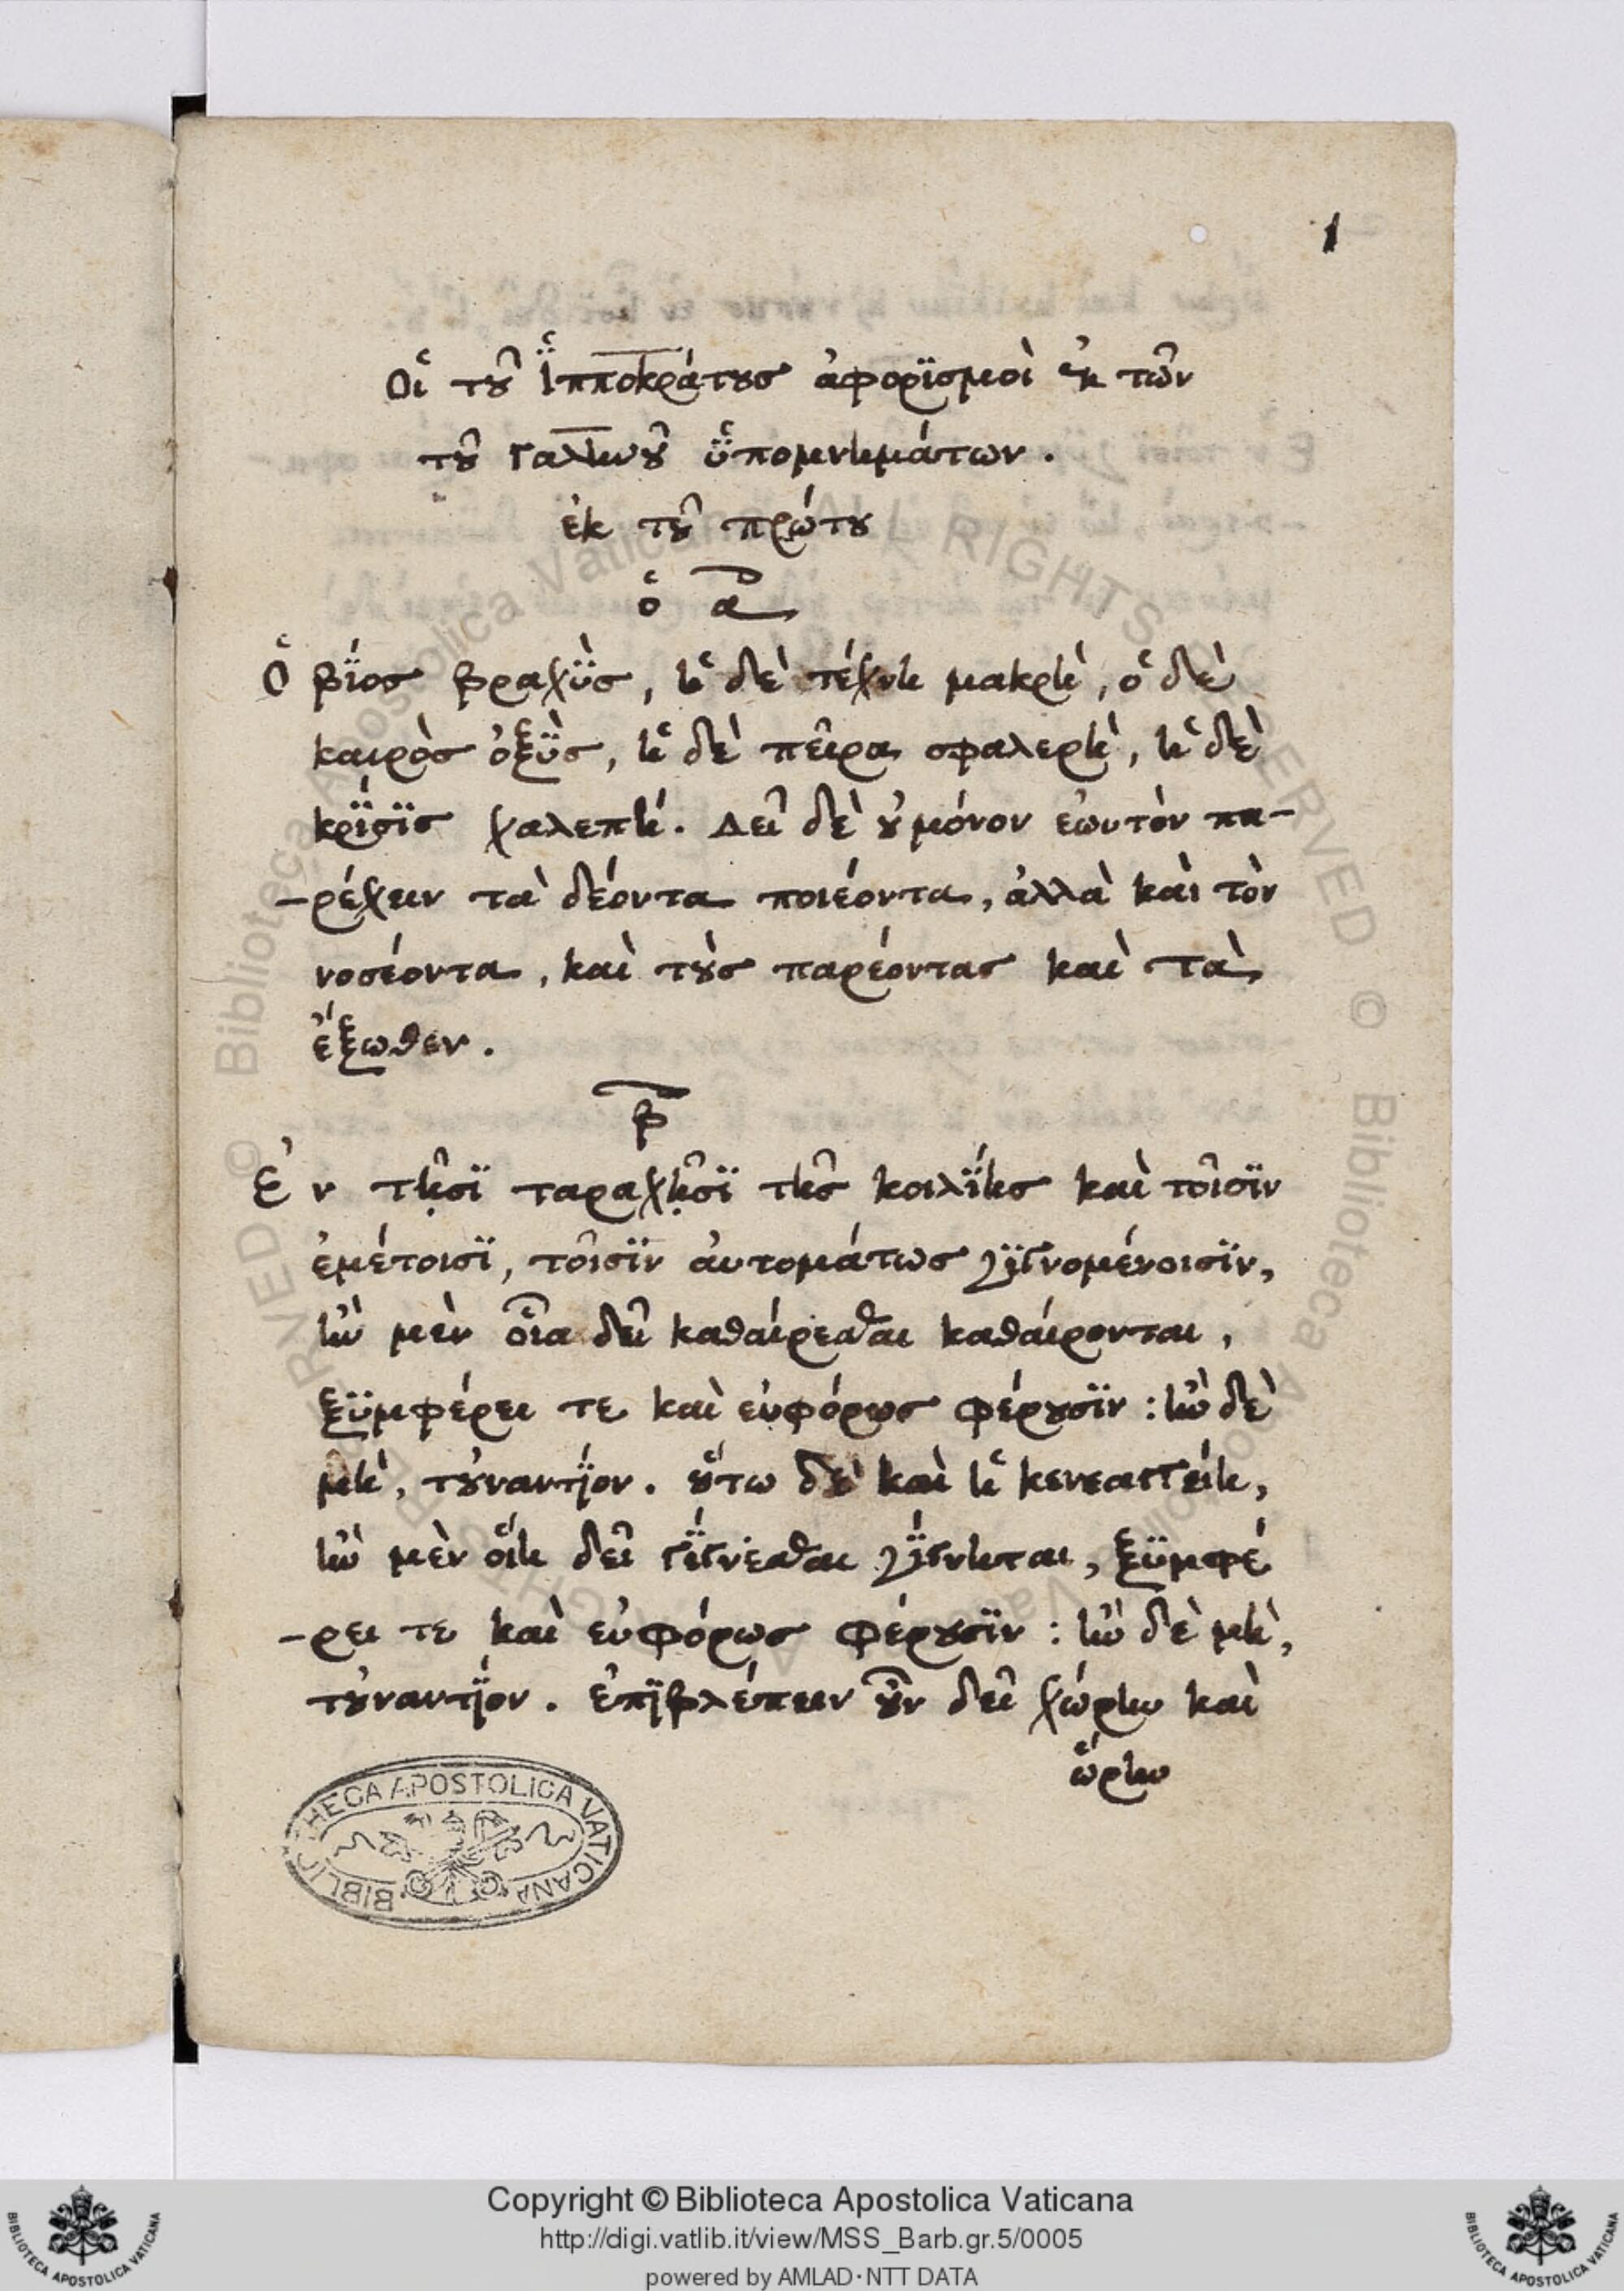 1
Οἱ τοῦ Ἱπποκράτους ἀφορϊσμοὶ ἐκ τῶν
τοῦ Γαληνοῦ ὑπομνημάτων.
ἐκ τοῦ πρώτου
ὁ α
Ὁ βΐος βραχὺς, ἡ δὲ τέχνη μακρὴ, ὁ δὲ
καιρὸς ὀξὺς, ἡ δὲ πεῖρα σφαλερὴ, ἡ δὲ
κρΐσϊς χαλεπή. Δεῖ δὲ οὐ μόνον ἑωυτόν πα-
-ρέχειν τὰ δέοντα ποιέοντα, ἀλλὰ καὶ τὸν
νοσέοντα, καὶ τοὺς παρέοντας καὶ τὰ
ἔξωθεν.
β
Ἐν τῇσϊ ταραχῇσϊ τῆς κοιλΐης καὶ τοῖσϊν
ἐμέτοισϊ, τοῖσϊν αὐτομάτως γϊγνομένοισϊν,
ἢν μὲν οἷα δεῖ καθαίρεσθαι καθαίρονται,
ξϋμφέρει τε καὶ εὐφόρως φέρουσϊν : ἢν δὲ
μὴ, τοὐναντΐον. οὕτω δὲ καὶ ἡ κενεαγγείη,
ἢν μὲν οἵη δεῖ γΐγνεσθαι γΐγνηται, ξϋμφέ
-ρει τε καὶ εὐφόρως φέρουσϊν : ἢν δὲ μὴ,
τοὐναντΐον. ἐπϊβλέπειν οὖν δεῖ χώρην καὶ
ὥρην
BIBLIOTHECA APOSTOLICA VATICANA
Copyright © Biblioteca Apostolica Vaticana
http://digi.vatlib.it/view/MSS_Barb.gr.5/0005
powered by AMLAD·NTT DATA
BIBLIOTECA APOSTOLICA VATICANA
BIBLIOTECA APOSTOLICA VATICANA